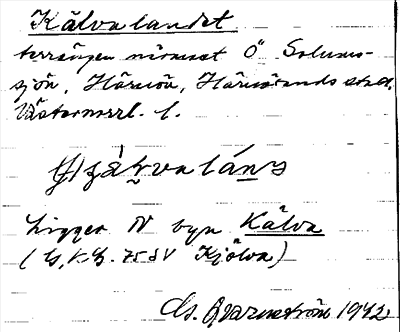 Kälvalandet
terrängen närmast Ö Solums-
sjön, Härnön, Härnösands stad,
Västernorrl. l.
Ligger N byn Kälva
(G.K.G. 75 SV Kjölva)
1942